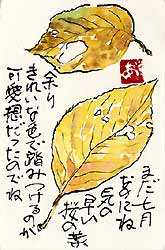 まだ七月
なのにね
気の
早い
桜の葉
余り
きれいな色で踏みつけるのが
可愛想だったのでね